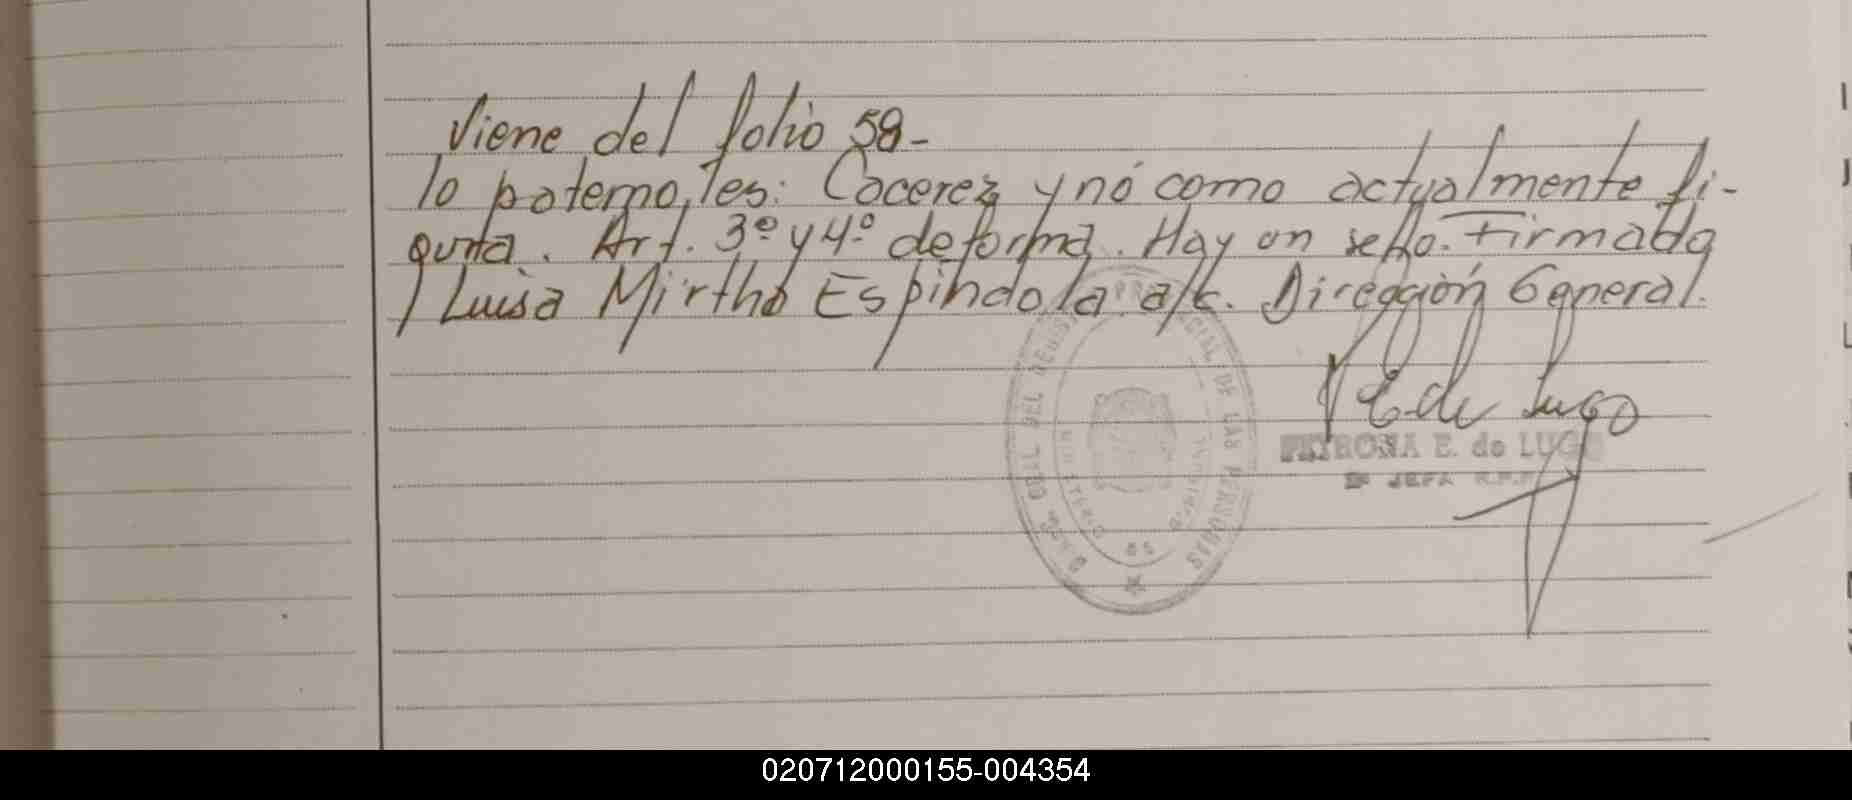 Viene del folio 58-
lo paterno, es: Cacerez y nó como actualmente fi-
gura. Art. 3º y 4º de forma. Hay un sello. Firmado
/ Luisa Mirtha Espindola a/c. Dirección General.
P E de Lugo
PETRONA E. de LUGO
JEFA R.P.P.
DEL REGISTRO PROVINCIAL DE LAS PERSONAS
020712000155-004354